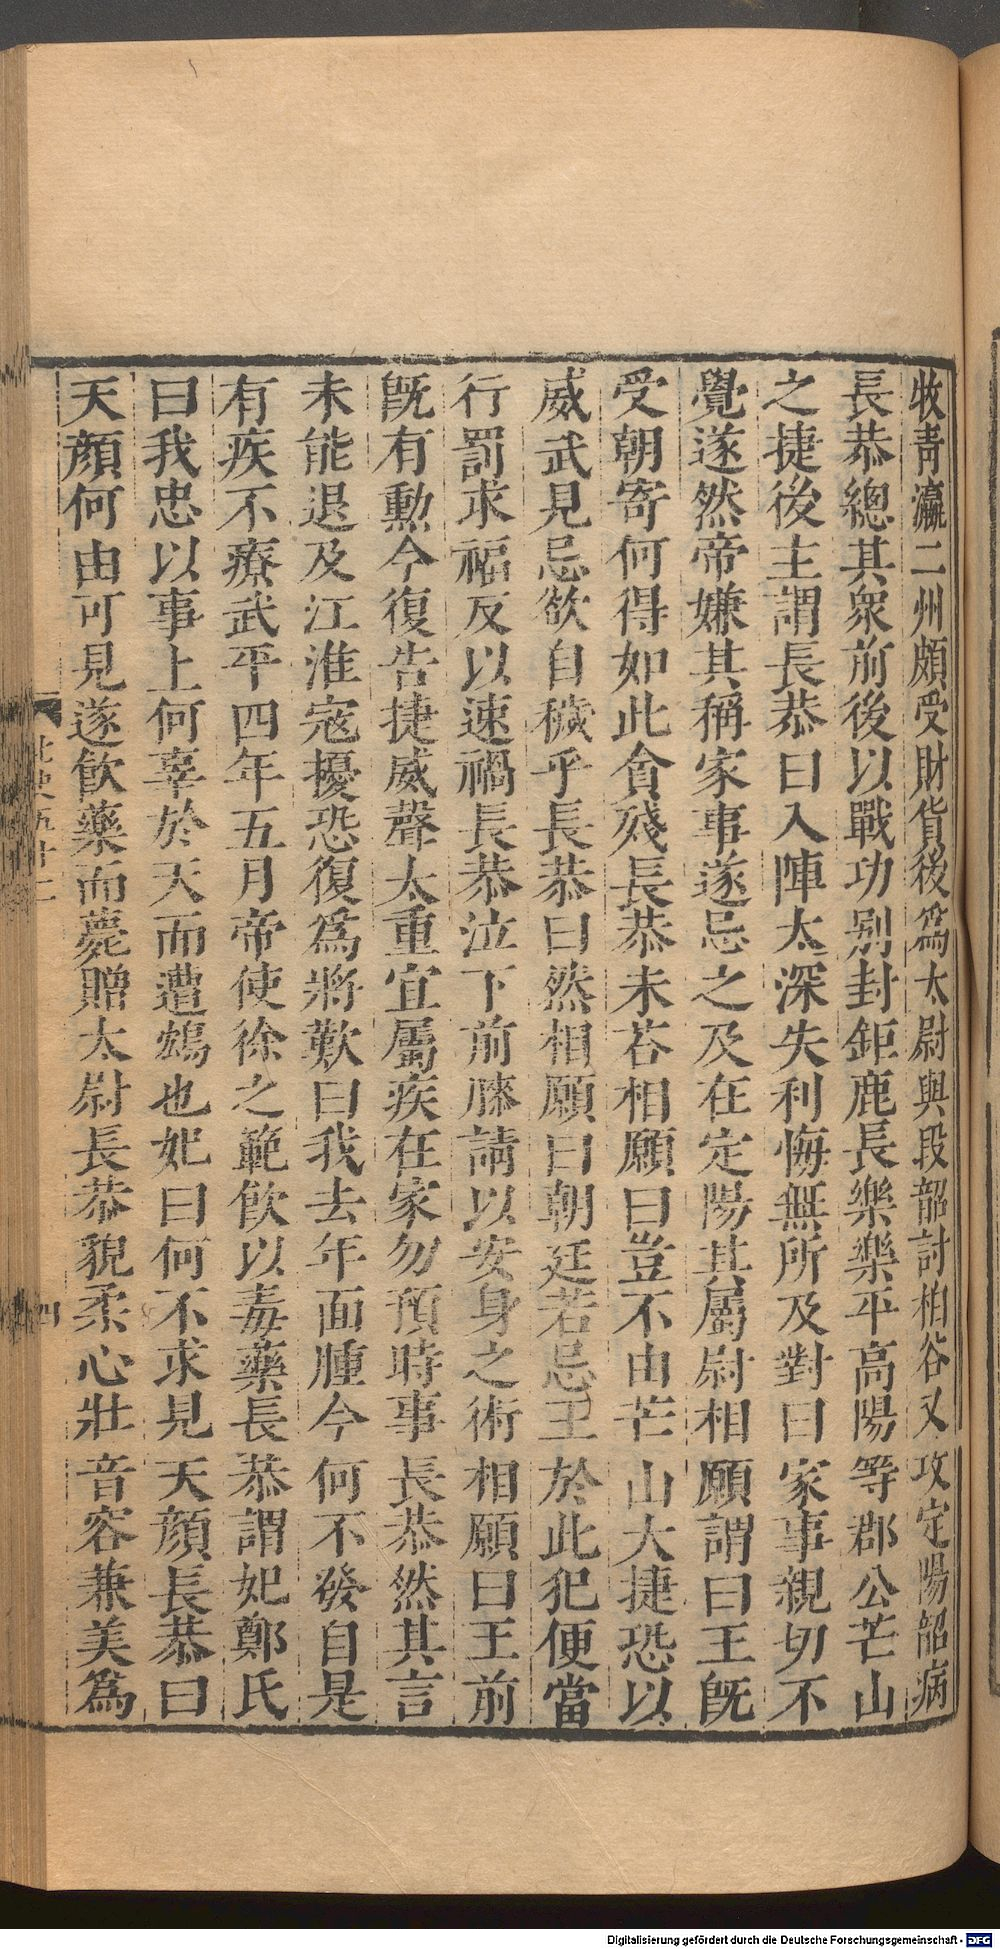 牧青瀛二州頗受財貨後爲太尉與段韶討柏谷又攻定陽韶病
長恭總其衆前後以戰功別封鉅鹿長樂樂平高陽等郡公芒山
之捷後主謂長恭曰入陣太深失利悔無所及對曰家事親切不
覺遂然帝嫌其稱家事遂忌之及在定陽其屬尉相願謂曰王旣
受朝寄何得如此貪殘長恭未荅相願曰豈不由芒山大捷恐以
威武見忌欲自穢乎長恭曰然相願曰朝廷若忌王於此犯便當
行罰求福反以速禍長恭泣下前膝請以安身之術相願曰王前
旣有勳今復告捷威聲太重宜屬疾在家勿預時事長恭然其言
未能退及江淮寇擾恐復爲將歎曰我去年面腫今何不發自是
有疾不療武平四年五月帝使徐之範飮以毒藥長恭謂妃鄭氏
曰我忠以事上何辜於天而遭鴆也妃曰何不求見天顔長恭曰
天顔何由可見遂飮藥而薨贈太尉長恭貌柔心壯音容兼美爲
北史五十二
四
Digitalisierung gefördert durch die Deutsche Forschungsgemeinschaft - DFG